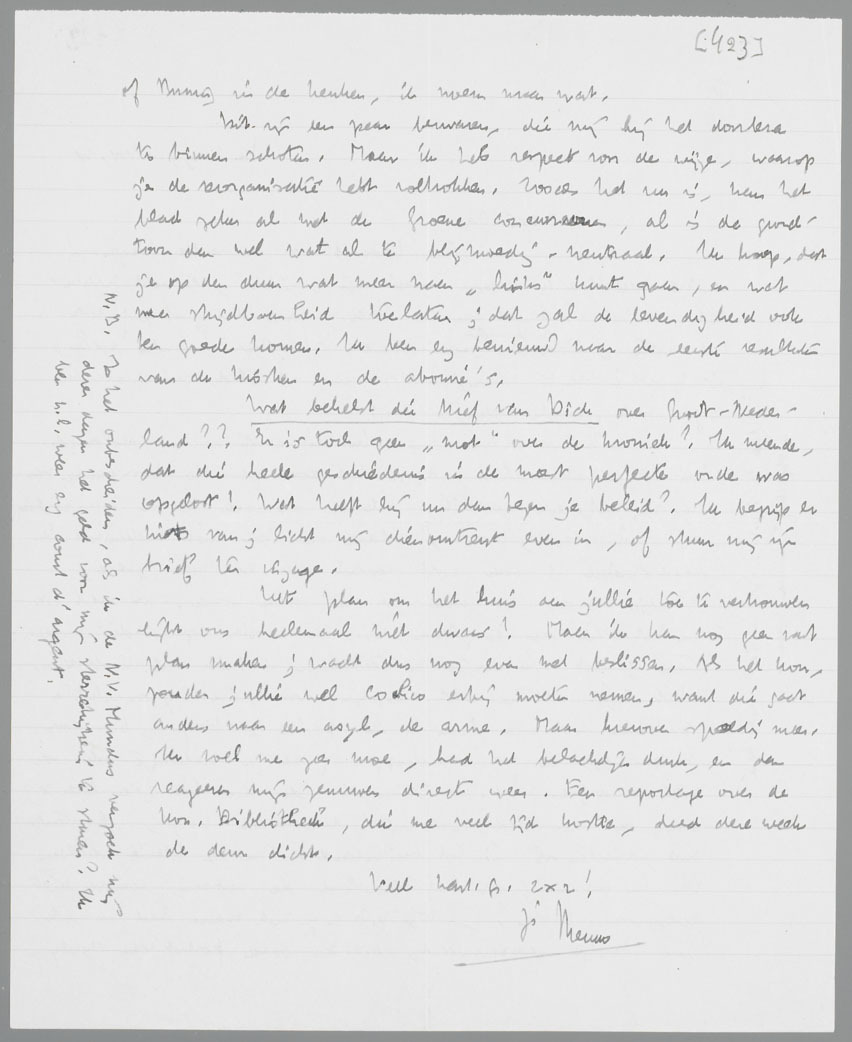 [423]
of in de keuken, ik noem maar wat.
Dit zijn een paar bezwaren, die mij bij het doorlezen
te binnen schoten. Maar ik heb respect voor de wijze, waarop
je de reorganisatie hebt voltrokken. Zooals het nu is, kan het
blad zeker al met de Groene concurreeren, al is de grond-
toon dan wel wat al te - neutraal. Ik hoop, dat
je op den duur wat meer naar „links" kunt gaan, en wat
meer strijdbaarheid toelaten; dat zal de levendigheid ook
ten goede komen. Ik ben erg benieuwd naar de eerste resultaten
van de kiosken en de abonné's.
Wat behelst die brief van Dick over Groot-Neder-
land?? Er is toch geen „mot" over de kroniek? Ik meende,
dat die heele geschiedenis in de meest perfecte orde was
opgelost! Wat heeft hij nu dan tegen je beleid? Ik begrijp er
niets van; licht mij dienomtrent even in, of stuur mij zijn
brief ter inzage.
Het plan om het huis aan jullie toe te vertrouwen
lijkt ons heelemaal niet dwaas! Maar ik kan nog geen vast
plan maken; wacht dus nog even met beslissen. Als het kon,
zouden jullie wel erbij moeten nemen, want die gaat
anders naar een asyl, de arme. Maar hierover spoedig meer.
Ik voel me zeer moe, had het belachelijk druk, en dan
reageeren mijn zenuwen direct weer. Een reportage over de
Kon. Bibliotheek, die me veel tijd kostte, deed deze week
de deur dicht.
Veel hart. gr. 2x2!
je Menno
N.B. Is het onbescheiden, als ik de N.V. Mundus verzoek mij
dezer dagen het geld voor mijn te sturen? Ik
ben n.l. weer erg court d'argent.